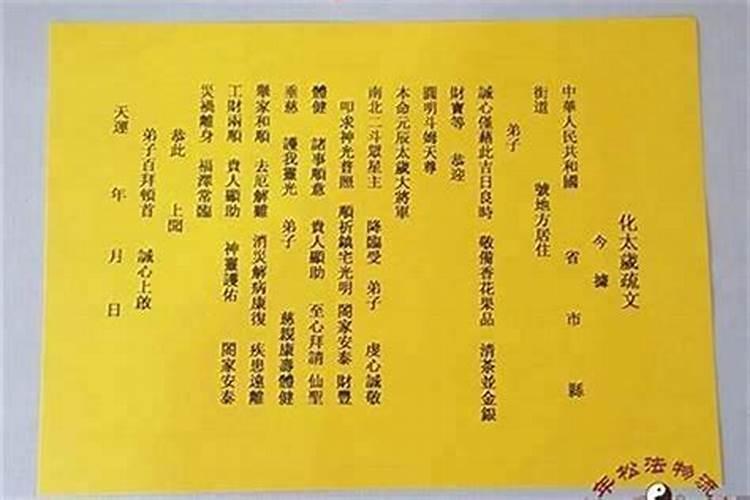 化太歲疏文
今據
中華人民共和國 省 市 縣
街道 號地方居住
弟子
誠心僅藉此吉日良時 敬備香花果品 清茶並金銀
財寶等 恭迎
圓明斗姆天尊
本命元辰太歲大將軍
南北二斗眾星主 降臨受 弟子 虔心誠敬
叩求神光普照 順祈鎮宅光明 閤家安泰 財豐
體健 諸事順意 貴人顯助 至心拜請 仙聖
垂慈 護我靈光 弟子 慈親康壽體健
舉家和順 去厄解難 消災解病康復 疾患遠離
工財兩順 貴人顯助 神靈護佑 閤家安泰
災禍離身 福澤常臨
恭此 上聞
弟子百拜頓首 誠心上啟
天運 年 月 日
年松法物流